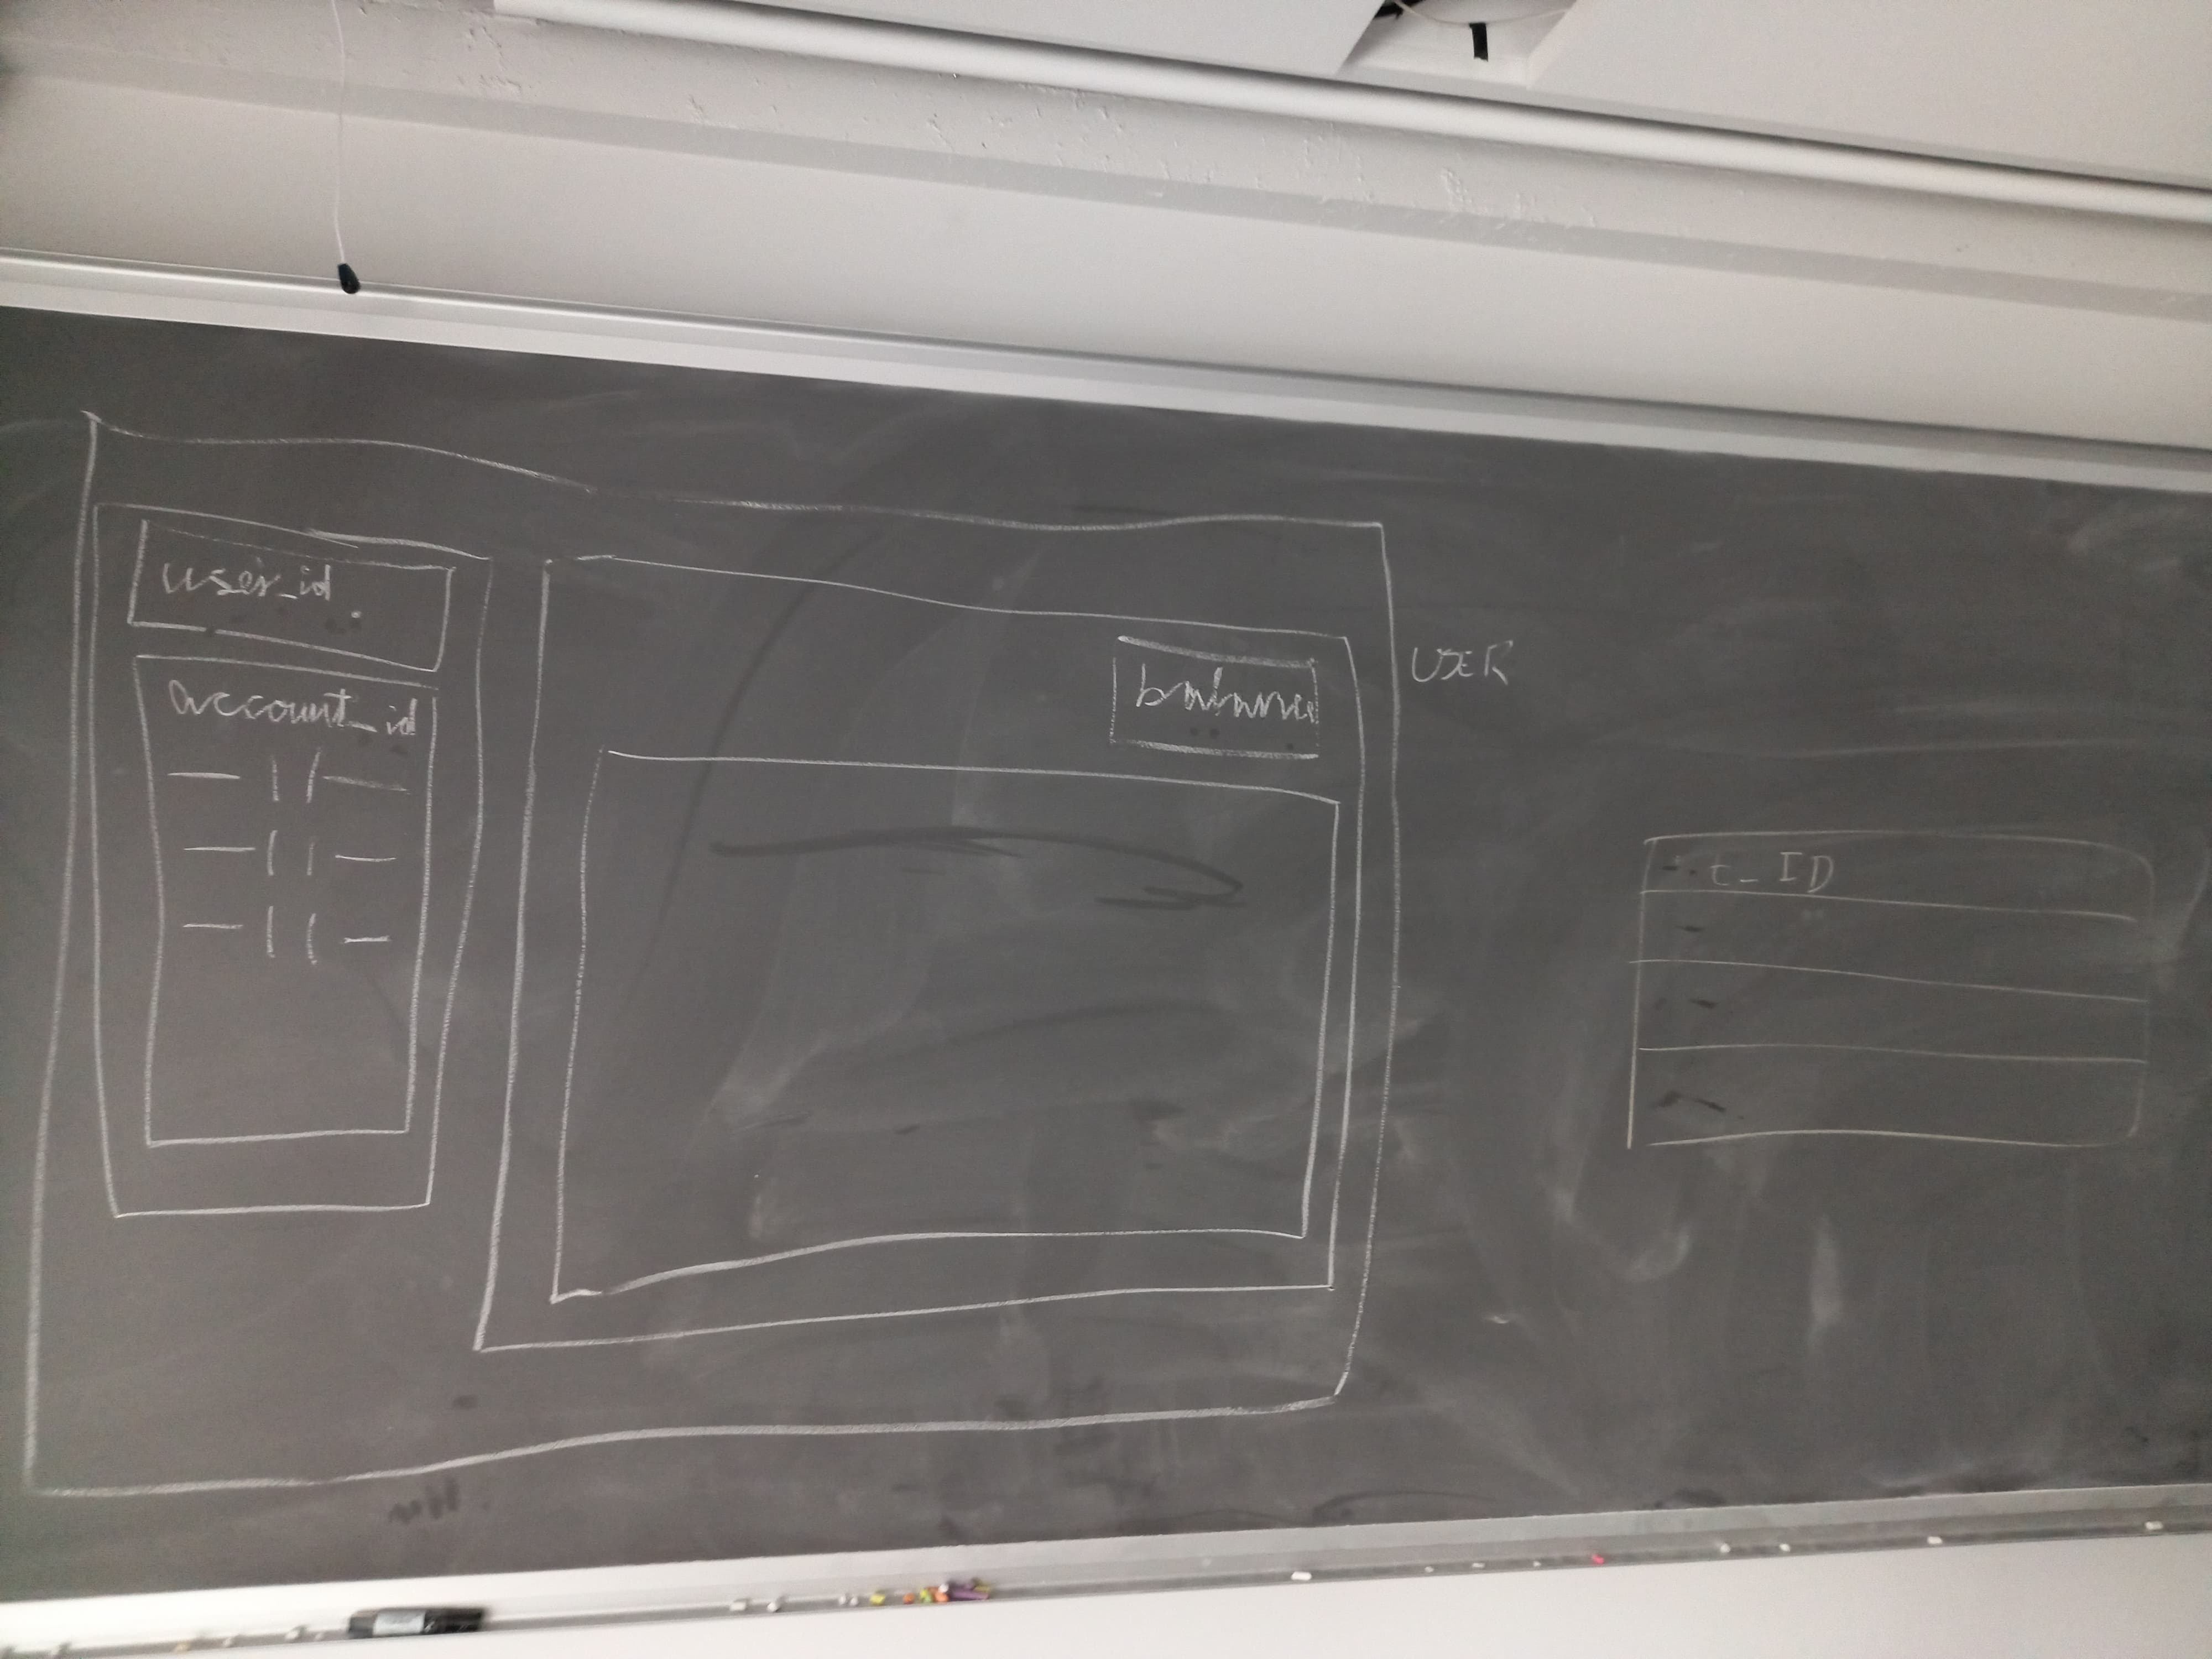 user_id
account_id
balance
USER
t_ID